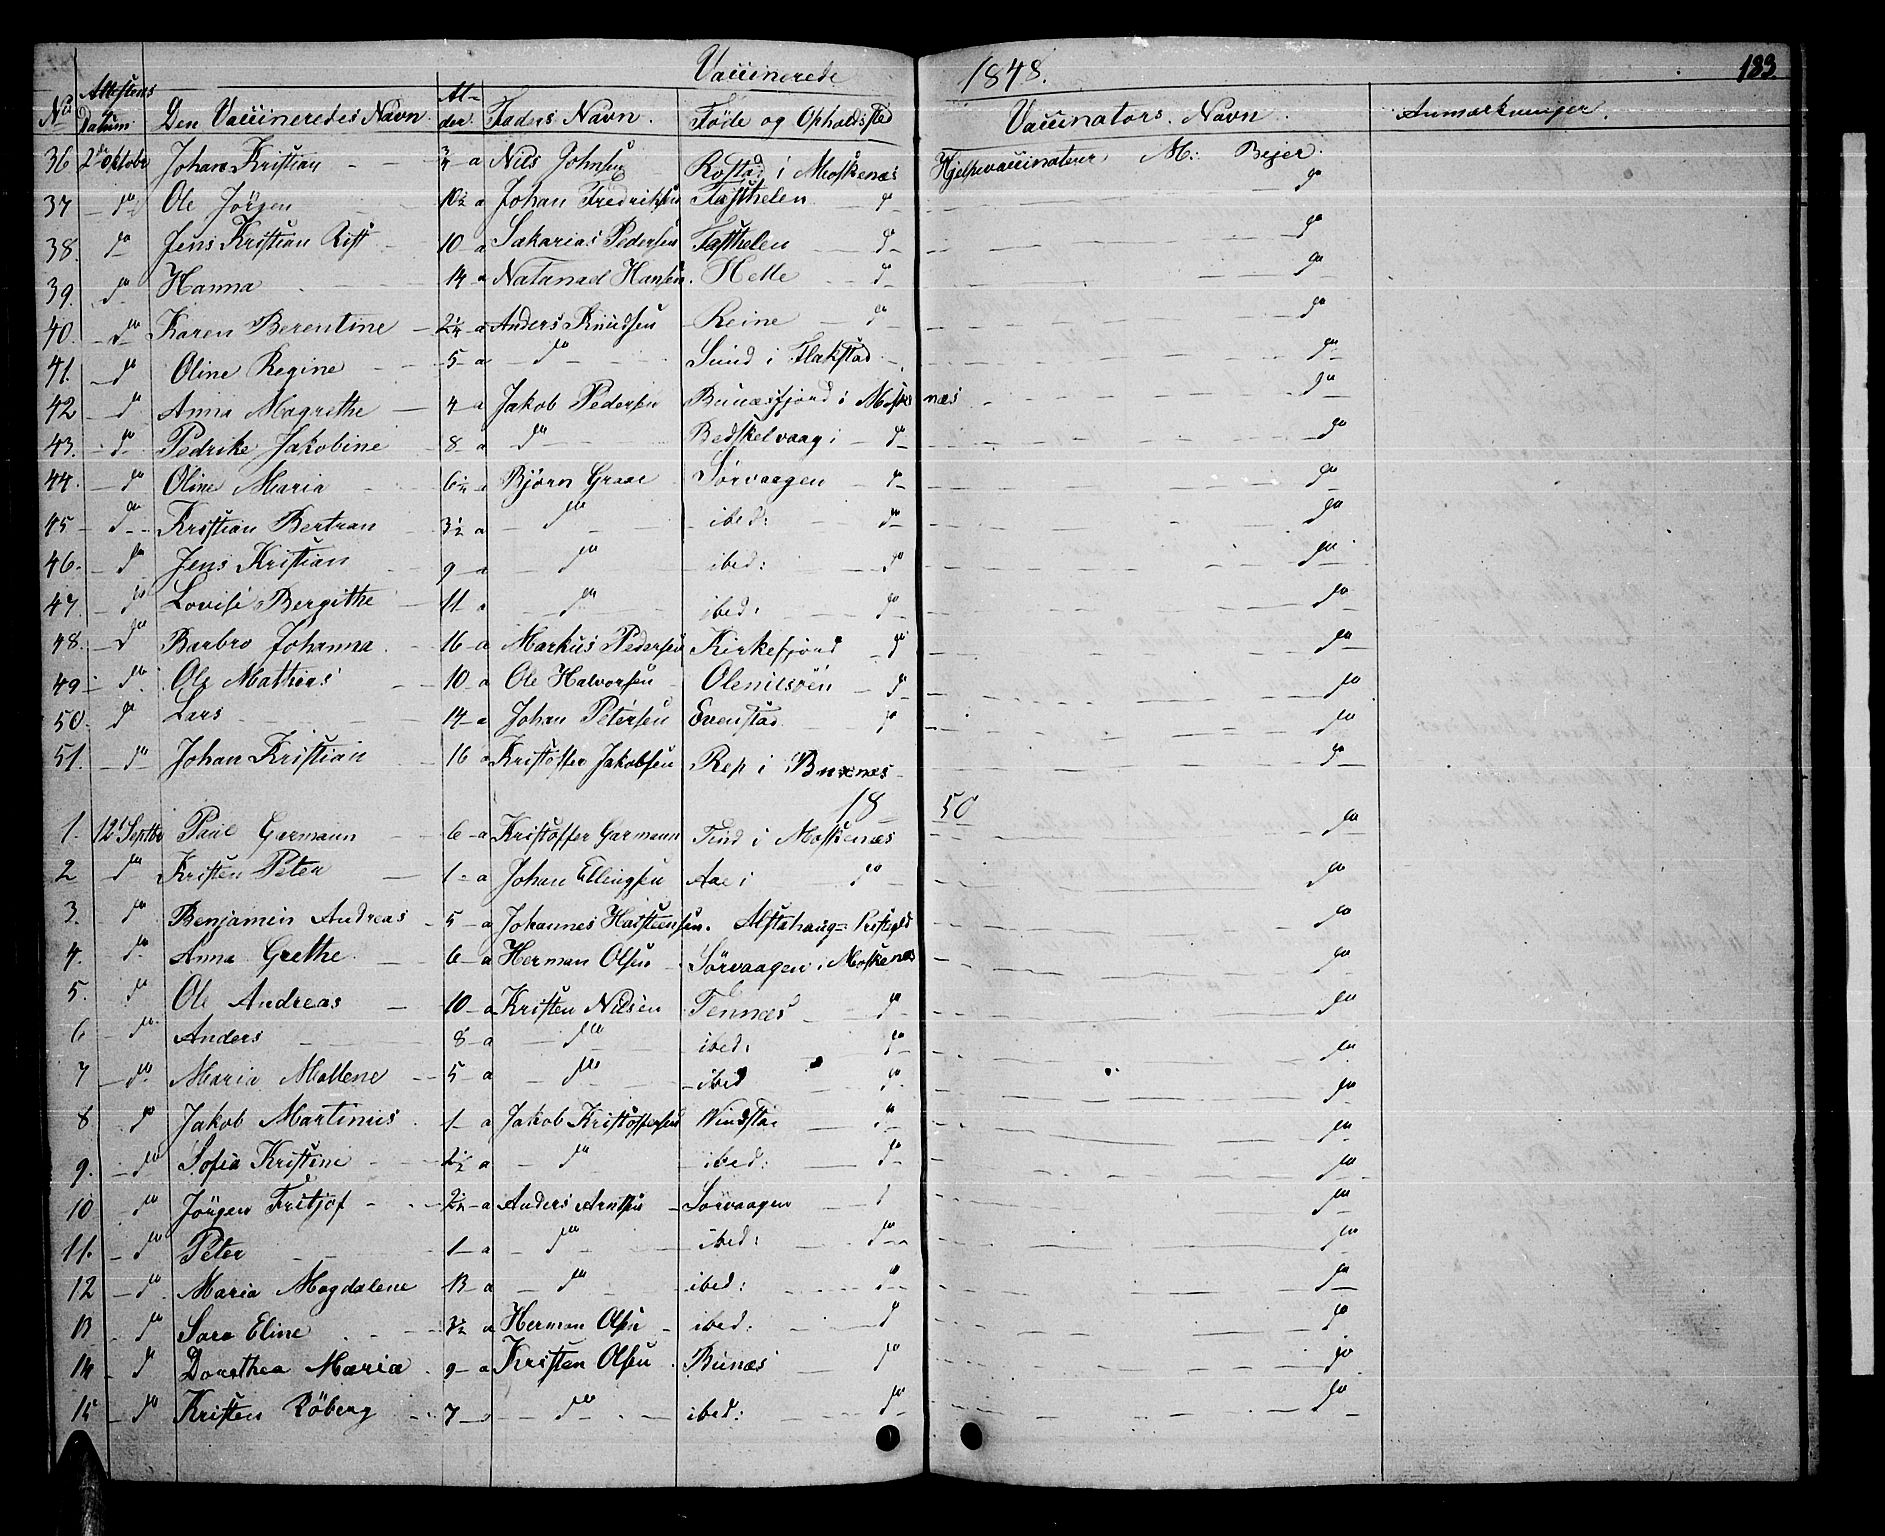 Vaccinerede 1848. 183.
No Attestens Datum Den Vaccineredes Navn. Alder Faders Navn. Føde og Opholdsted Vaccinators Navn. Anmærkninger.
36 2de Oktobr Johan Kristian 3/4 a Nils Johnsen Rostad i Moskenæs Hjelpevaccinateur M: Bejer.
37 do Ole Jörgen 10 1/2 a Johan Fredriksen Tasthelen do do
38. do Jens Kristian Rist 10 a Sakarias Pedersen Tasthelen do do
39. do Hanna 14 a Natanael Hansen. Helle do do
40. do Karen Berentine 2 1/4 a Anders Knudsen Reine do do
41. do Oline Regine 5 a do Sund i Flakstad. do
42 do Anna Magrethe 4 a Jakob Pedersen Bunæsfjord i Moskenæs do
43. do Pedrike Jakobine 8 a do Bedskelvaag i do do
44. do Oline Maria 6 1/2 a Bjørn Graae Sörvaagen do do
45 do Kristian Bertran 3 1/2 a do ibed: do do
46. do Jens Kristian 9 a do ibed: do do
47. do Lovise Bergithe 11 a do ibed: do do
48. do Barbro Johanna 16 a Markus Pedersen Kirkefjord do do
49 do Ole Mathias 10 a Ole Halvorsen Olenilsöen do do
50. do Lars 14 a Johan Petersen Evenstad do do
51. do Johan Kristian 16 a Kristoffer Jakobsen Rep i Buxnæs do
1850
1. 12t Septbr Paul Garmann 6 a Kristoffer Garmann Tind i Moskenæs do
2 do Kristen Peter 1 a Johan Ellingsen Aae i do do
3. do Benjamin Andreas 5 a Johannes Halsteensen. Alstahaug Pristgjeld do
4. do Anna Grethe 6 a Herman Olsen Sörvaagen i Moskenæs do
5. do Ole Andreas 10 a Kristen Nilsen Tennæs do do
6 do Anders 8 a do ibed: do do
7 do Maria Mallene 5 a do ibed do do
8 do Jakob Martinus 1 a Jakob Kristoffersen Vindstad do do
9. do Sofia Kristine 2 1/2 a do ibed: do do
10 do Jörgen Fritjof 2 1/2 a Anders Arntsen Sörvaagen do do
11. do Peter 1 a do ibed: do do
12 do Maria Magdalene 13 a do ibed: do do
13 do Sara Eline 3 1/2 a Herman Olsen ibed: do do
14 do Dorothea Maria 9 a Kristen Olsen Bunæs do do
15 do Kristen Röberg 7 do ibed: do do